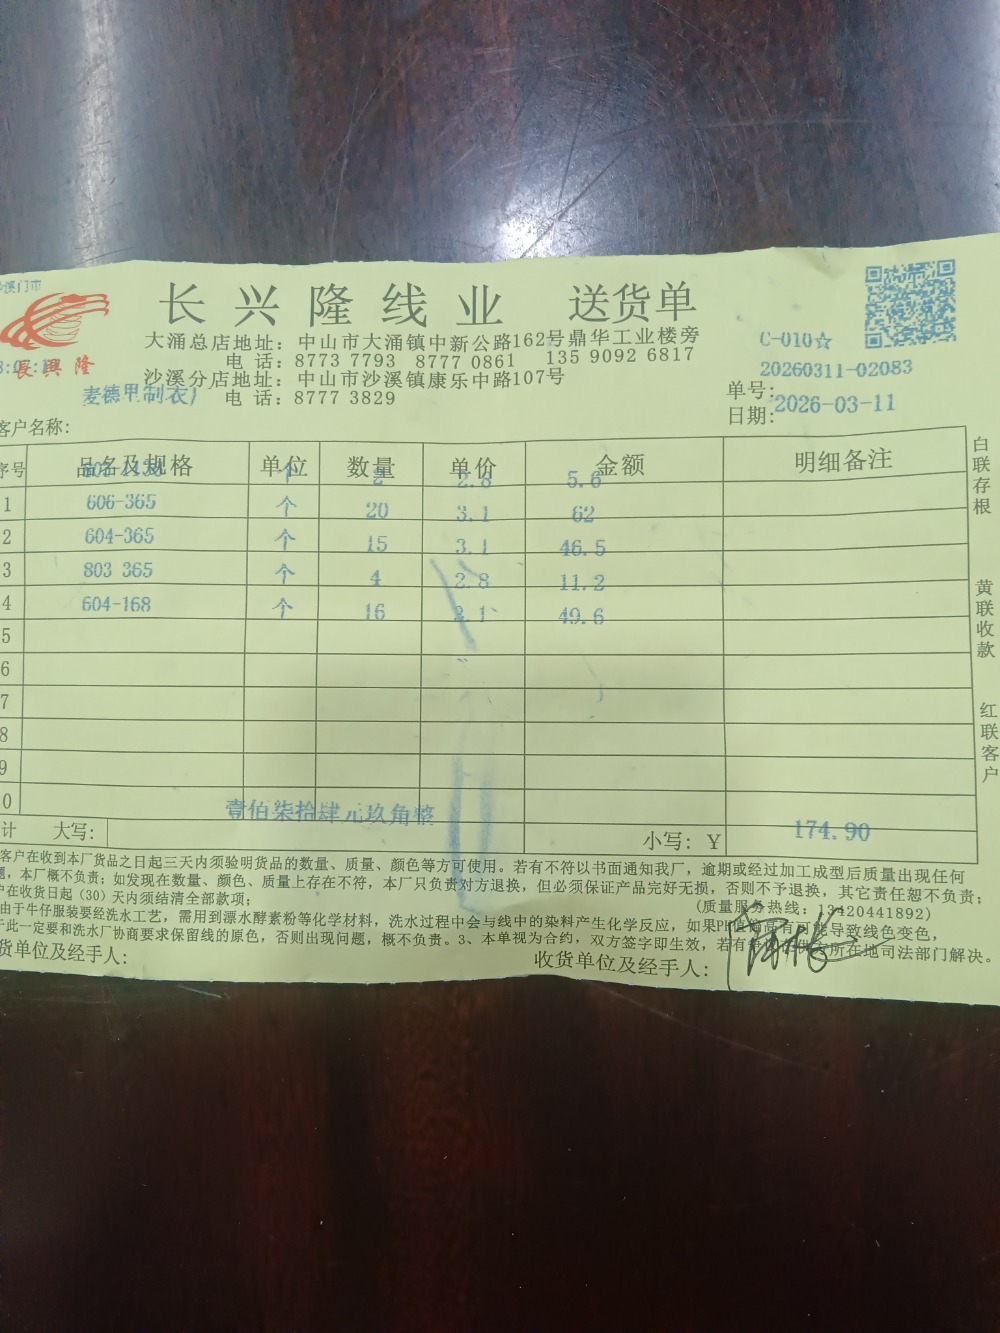 沙溪门市
長興隆
长兴隆线业 送货单
大涌总店地址：中山市大涌镇中新公路162号鼎华工业楼旁
电 话：8773 7793 8777 0861 135 9092 6817
沙溪分店地址：中山市沙溪镇康乐中路107号
电 话：8777 3829
麦德甲制衣厂
C-010☆
单号：20260311-02083
日期：2026-03-11
客户名称：
序号 品名及规格 单位 数量 单价 金额 明细备注
个 2 2.8 5.6
1 606-365 个 20 3.1 62
2 604-365 个 15 3.1 46.5
3 803 365 个 4 2.8 11.2
4 604-168 个 16 3.1 49.6
5
6
7
8
9
0
计 大写： 壹佰柒拾肆元玖角整 小写：￥ 174.90
白联存根
黄联收款
红联客户
客户在收到本厂货品之日起三天内须验明货品的数量、质量、颜色等方可使用。若有不符以书面通知我厂，逾期或经过加工成型后质量出现任何
题，本厂概不负责；如发现在数量、颜色、质量上存在不符，本厂只负责对方退换，但必须保证产品完好无损，否则不予退换，其它责任恕不负责；
户在收货日起（30）天内须结清全部款项；
(质量服务热线：13420441892)
由于牛仔服装要经洗水工艺，需用到漂水酵素粉等化学材料，洗水过程中会与线中的染料产生化学反应，如果PH值偏高有可能导致线色变色，
于此一定要和洗水厂协商要求保留线的原色，否则出现问题，概不负责。3、本单视为合约，双方签字即生效，若有 供方所在地司法部门解决。
货单位及经手人：
收货单位及经手人：